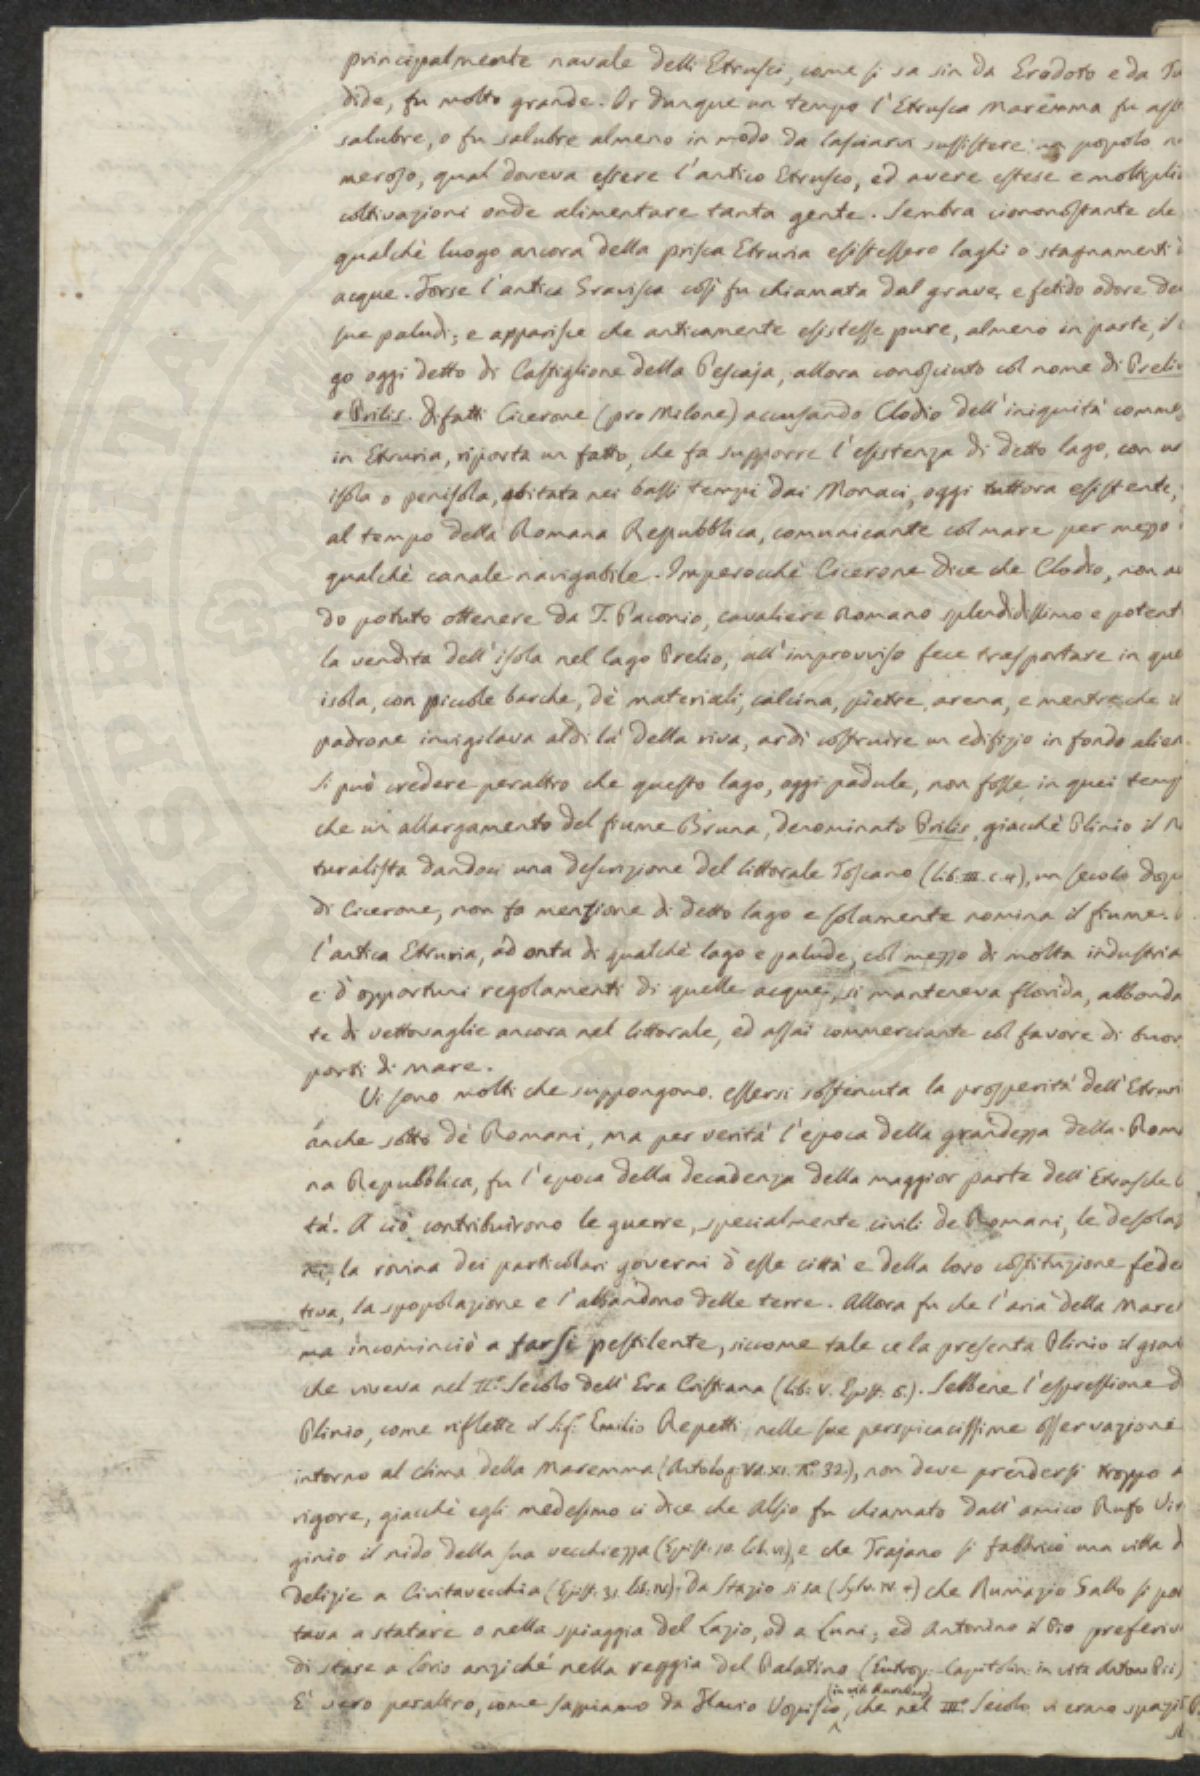 principalmente navale delli Etrusci, come si sa sin da Erodoto e da Tu
dide, fu molto grande. Or dunque un tempo l'Etrusca Maremma fu ass
salubre, o fu salubre almeno in modo da lasciarvi sussistere un popolo nu
meroso, qual doveva essere l'antico Etrusco, ed avere estese e moltipli
coltivazioni onde alimentare tanta gente. Sembra ciononostante che
qualche luogo ancora della prisca Etruria esistessero laghi o stagnamenti d
acque. Forse l'antica Gravisca così fu chiamata dal grave, e fetido odore de
sue paludi; e apparisce che anticamente esistesse pure, almeno in parte, il
go oggi detto di Castiglione della Pescaja, allora conosciuto col nome di Preli
o Prilis. Difatti Cicerone (pro Milone) accusando Clodio dell'iniquità comme
in Etruria, riporta un fatto, che fa supporre l'esistenza di detto lago, con un
isola o penisola, abitata nei bassi tempi dai Monaci, oggi tuttora esistente,
al tempo della Romana Repubblica, comunicante col mare per mezzo
qualche canale navigabile. Imperocchè Cicerone dice che Clodio, non av
do potuto ottenere da T. Paconio, cavaliere Romano splendidissimo e potent
la vendita dell'isola nel lago Prelio, all'improvviso fece trasportare in que
isola, con piccole barche, dè materiali, calcina, pietre, arena, e mentre che il
padrone invigilava aldilà della riva, ardì costruire un edifizio in fondo alien
Si può credere peraltro che questo lago, oggi padule, non fosse in quei temp
che un allargamento del fiume Bruna, denominato Prilis, giacchè Plinio il Na
turalista dandoci una descrizione del littorale Toscano (Lib. III. c. 4), un secolo dopo
di Cicerone, non fa menzione di detto lago e solamente nomina il fiume.
l'antica Etruria, ad onta di qualche lago e palude, col mezzo di molta industria
e d'opportuni regolamenti di quelle acque, si manteneva florida, abbonda
te di vettovaglie ancora nel littorale, ed assai commerciante col favore di buon
porti di mare.
Vi sono molti che suppongono essersi sostenuta la prosperità dell'Etruri
anche sotto dè Romani, ma per verità l'epoca della grandezza della Roma
na Repubblica, fu l'epoca della decadenza della maggior parte dell'Etrusche
tà. A ciò contribuirono le guerre, specialmente civili de Romani, le desola
ni, la rovina dei particolari governi d'esse città e della loro costituzione fede
tiva, la spopolazione e l'abbandono delle terre. Allora fu che l'aria della Mare
ma incominciò a farsi pestilente, siccome tale ce la presenta Plinio il giov
che viveva nel II.° Secolo dell'Era Cristiana (Lib. V. Epist. 6.). Sebbene l'espressione d
Plinio, come riflette il Sig: Emilio Repetti nelle sue perspicacissime osservazione
intorno al clima della Maremma (Antolog: Vol. XI. N.° 32.), non deve prendersi troppo a
rigore, giacchè egli medesimo ci dice che Alsio fu chiamato dall'amico Rufo Vir
ginio il nido della sua vecchiezza (Epist. 10. Lib. VI), e che Trajano si fabbricò una villa d
delizie a Civitavecchia (Epist. 31. lib. IV); da Stazio si sa (Sylv. IV. 4) che Rumazio Gallo si por
tava a statare o nella spiaggia del Lazio, od a Luni; ed Antonino il Pio preferiv
di stare a Lorio anziché nella reggia del Palatino (Eutrop. Capitolin. in vita Anton Pii)
(in vita Aureliani)
E' vero peraltro, come sappiamo da Flavio Vopisco, che nel III.° Secolo vi erano spazi